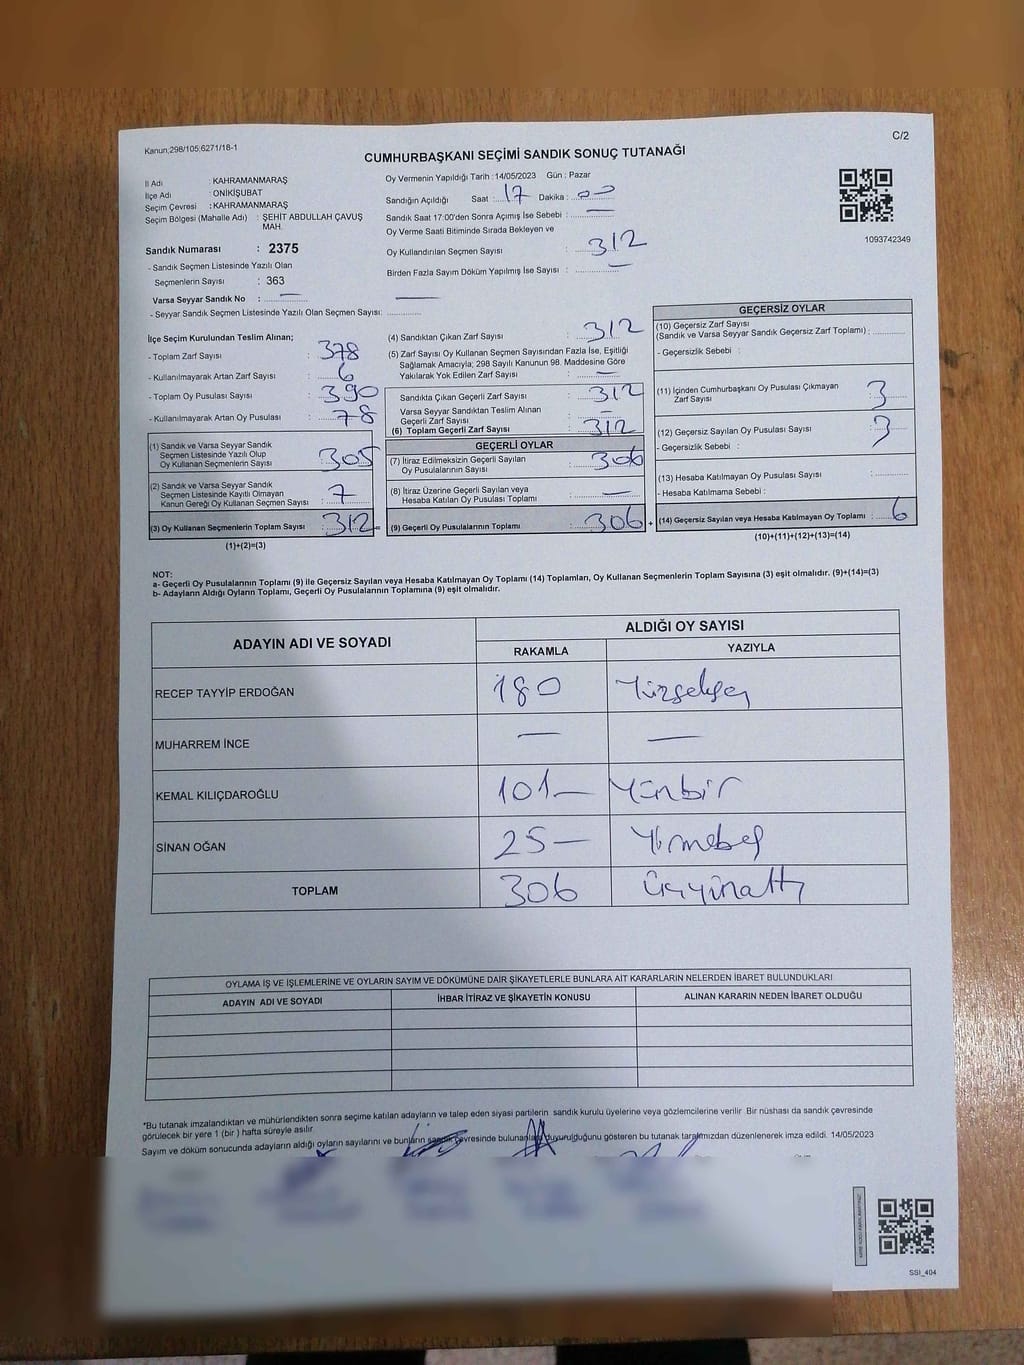 Kanun;298/105;6271/18-1
C/2
CUMHURBAŞKANI SEÇİMİ SANDIK SONUÇ TUTANAĞI
İl Adı : KAHRAMANMARAŞ
İlçe Adı : ONİKİŞUBAT
Seçim Çevresi : KAHRAMANMARAŞ
Seçim Bölgesi (Mahalle Adı) : ŞEHİT ABDULLAH ÇAVUŞ
MAH.
Sandık Numarası : 2375
- Sandık Seçmen Listesinde Yazılı Olan
Seçmenlerin Sayısı : 363
Varsa Seyyar Sandık No : —
- Seyyar Sandık Seçmen Listesinde Yazılı Olan Seçmen Sayısı: —
Oy Vermenin Yapıldığı Tarih :14/05/2023 Gün : Pazar
Sandığın Açıldığı Saat : 17 Dakika : 00
Sandık Saat 17:00'den Sonra Açımış İse Sebebi : —
Oy Verme Saati Bitiminde Sırada Bekleyen ve
Oy Kullandırılan Seçmen Sayısı : 312
Birden Fazla Sayım Döküm Yapılmış İse Sayısı : —
1093742349
İlçe Seçim Kurulundan Teslim Alınan;
- Toplam Zarf Sayısı : 378
- Kullanılmayarak Artan Zarf Sayısı : 6
- Toplam Oy Pusulası Sayısı : 390
- Kullanılmayarak Artan Oy Pusulası : 78
(1) Sandık ve Varsa Seyyar Sandık
Seçmen Listesinde Yazılı Olup
Oy Kullanan Seçmenlerin Sayısı : 305
(2) Sandık ve Varsa Seyyar Sandık
Seçmen Listesinde Kayıtlı Olmayan
Kanun Gereği Oy Kullanan Seçmen Sayısı : 7
(3) Oy Kullanan Seçmenlerin Toplam Sayısı : 312 =
(1)+(2)=(3)
(4) Sandıktan Çıkan Zarf Sayısı : 312
(5) Zarf Sayısı Oy Kullanan Seçmen Sayısından Fazla İse, Eşitliği
Sağlamak Amacıyla; 298 Sayılı Kanunun 98. Maddesine Göre
Yakılarak Yok Edilen Zarf Sayısı : —
Sandıkta Çıkan Geçerli Zarf Sayısı : 312
Varsa Seyyar Sandıktan Teslim Alınan
Geçerli Zarf Sayısı : —
(6) Toplam Geçerli Zarf Sayısı : 312
GEÇERLİ OYLAR
(7) İtiraz Edilmeksizin Geçerli Sayılan
Oy Pusulalarının Sayısı : 306
(8) İtiraz Üzerine Geçerli Sayılan veya
Hesaba Katılan Oy Pusulası Toplamı : —
(9) Geçerli Oy Pusulalarının Toplamı : 306 +
GEÇERSİZ OYLAR
(10) Geçersiz Zarf Sayısı
(Sandık ve Varsa Seyyar Sandık Geçersiz Zarf Toplamı) :
- Geçersizlik Sebebi :
(11) İçinden Cumhurbaşkanı Oy Pusulası Çıkmayan
Zarf Sayısı : 3
(12) Geçersiz Sayılan Oy Pusulası Sayısı : 3
- Geçersizlik Sebebi :
(13) Hesaba Katılmayan Oy Pusulası Sayısı :
- Hesaba Katılmama Sebebi :
(14) Geçersiz Sayılan veya Hesaba Katılmayan Oy Toplamı : 6
(10)+(11)+(12)+(13)=(14)
NOT:
a- Geçerli Oy Pusulalarının Toplamı (9) ile Geçersiz Sayılan veya Hesaba Katılmayan Oy Toplamı (14) Toplamları, Oy Kullanan Seçmenlerin Toplam Sayısına (3) eşit olmalıdır. (9)+(14)=(3)
b- Adayların Aldığı Oyların Toplamı, Geçerli Oy Pusulalarının Toplamına (9) eşit olmalıdır.
ADAYIN ADI VE SOYADI
ALDIĞI OY SAYISI
RAKAMLA YAZIYLA
RECEP TAYYİP ERDOĞAN 180 Yüzseksen
MUHARREM İNCE — —
KEMAL KILIÇDAROĞLU 101— Yüzbir
SİNAN OĞAN 25— Yirmebeş
TOPLAM 306 Üçyüzaltı
OYLAMA İŞ VE İŞLEMLERİNE VE OYLARIN SAYIM VE DÖKÜMÜNE DAİR ŞİKAYETLERLE BUNLARA AİT KARARLARIN NELERDEN İBARET BULUNDUKLARI
ADAYIN ADI VE SOYADI İHBAR İTİRAZ VE ŞİKAYETİN KONUSU ALINAN KARARIN NEDEN İBARET OLDUĞU
*Bu tutanak imzalandıktan ve mühürlendikten sonra seçime katılan adayların ve talep eden siyasi partilerin sandık kurulu üyelerine veya gözlemcilerine verilir. Bir nüshası da sandık çevresinde
görülecek bir yere 1 (bir ) hafta süreyle asılır.
Sayım ve döküm sonucunda adayların aldığı oyların sayılarını ve bunların sandık çevresinde bulunanlara duyurulduğunu gösteren bu tutanak tarafımızdan düzenlenerek imza edildi. 14/05/2023
SSİ_404